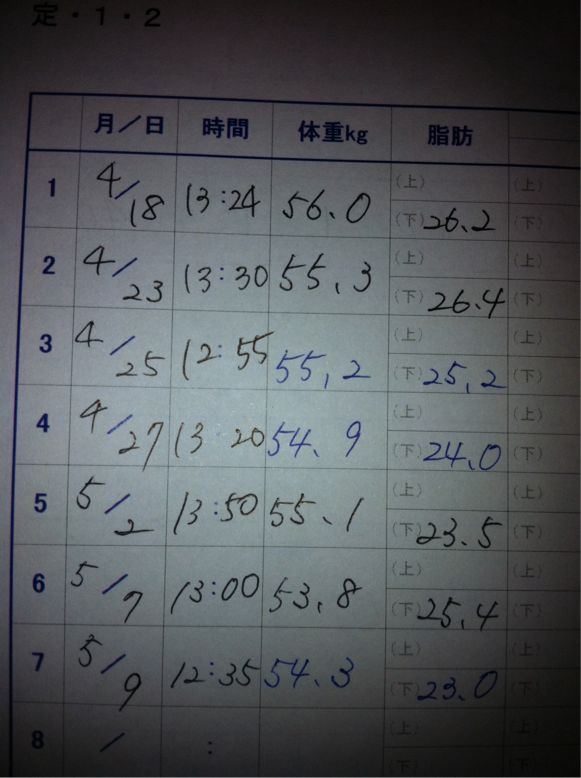 定・1・2
月／日 時間 体重kg 脂肪
(上) (上)
1 4/18 13:24 56.0 (下)26.2 (下)
(上) (上)
2 4/23 13:30 55.3 (下)26.4 (下)
(上) (上)
3 4/25 12:55 55,2 (下)25,2 (下)
(上) (上)
4 4/27 13 20 54.9 (下)24.0 (下)
(上) (上)
5 5/2 13:50 55.1 (下)23.5 (下)
(上) (上)
6 5/7 13:00 53.8 (下)25.4 (下)
(上) (上)
7 5/9 12:35 54.3 (下)23.0 (下)
(上) (上)
8 / : (下) (下)